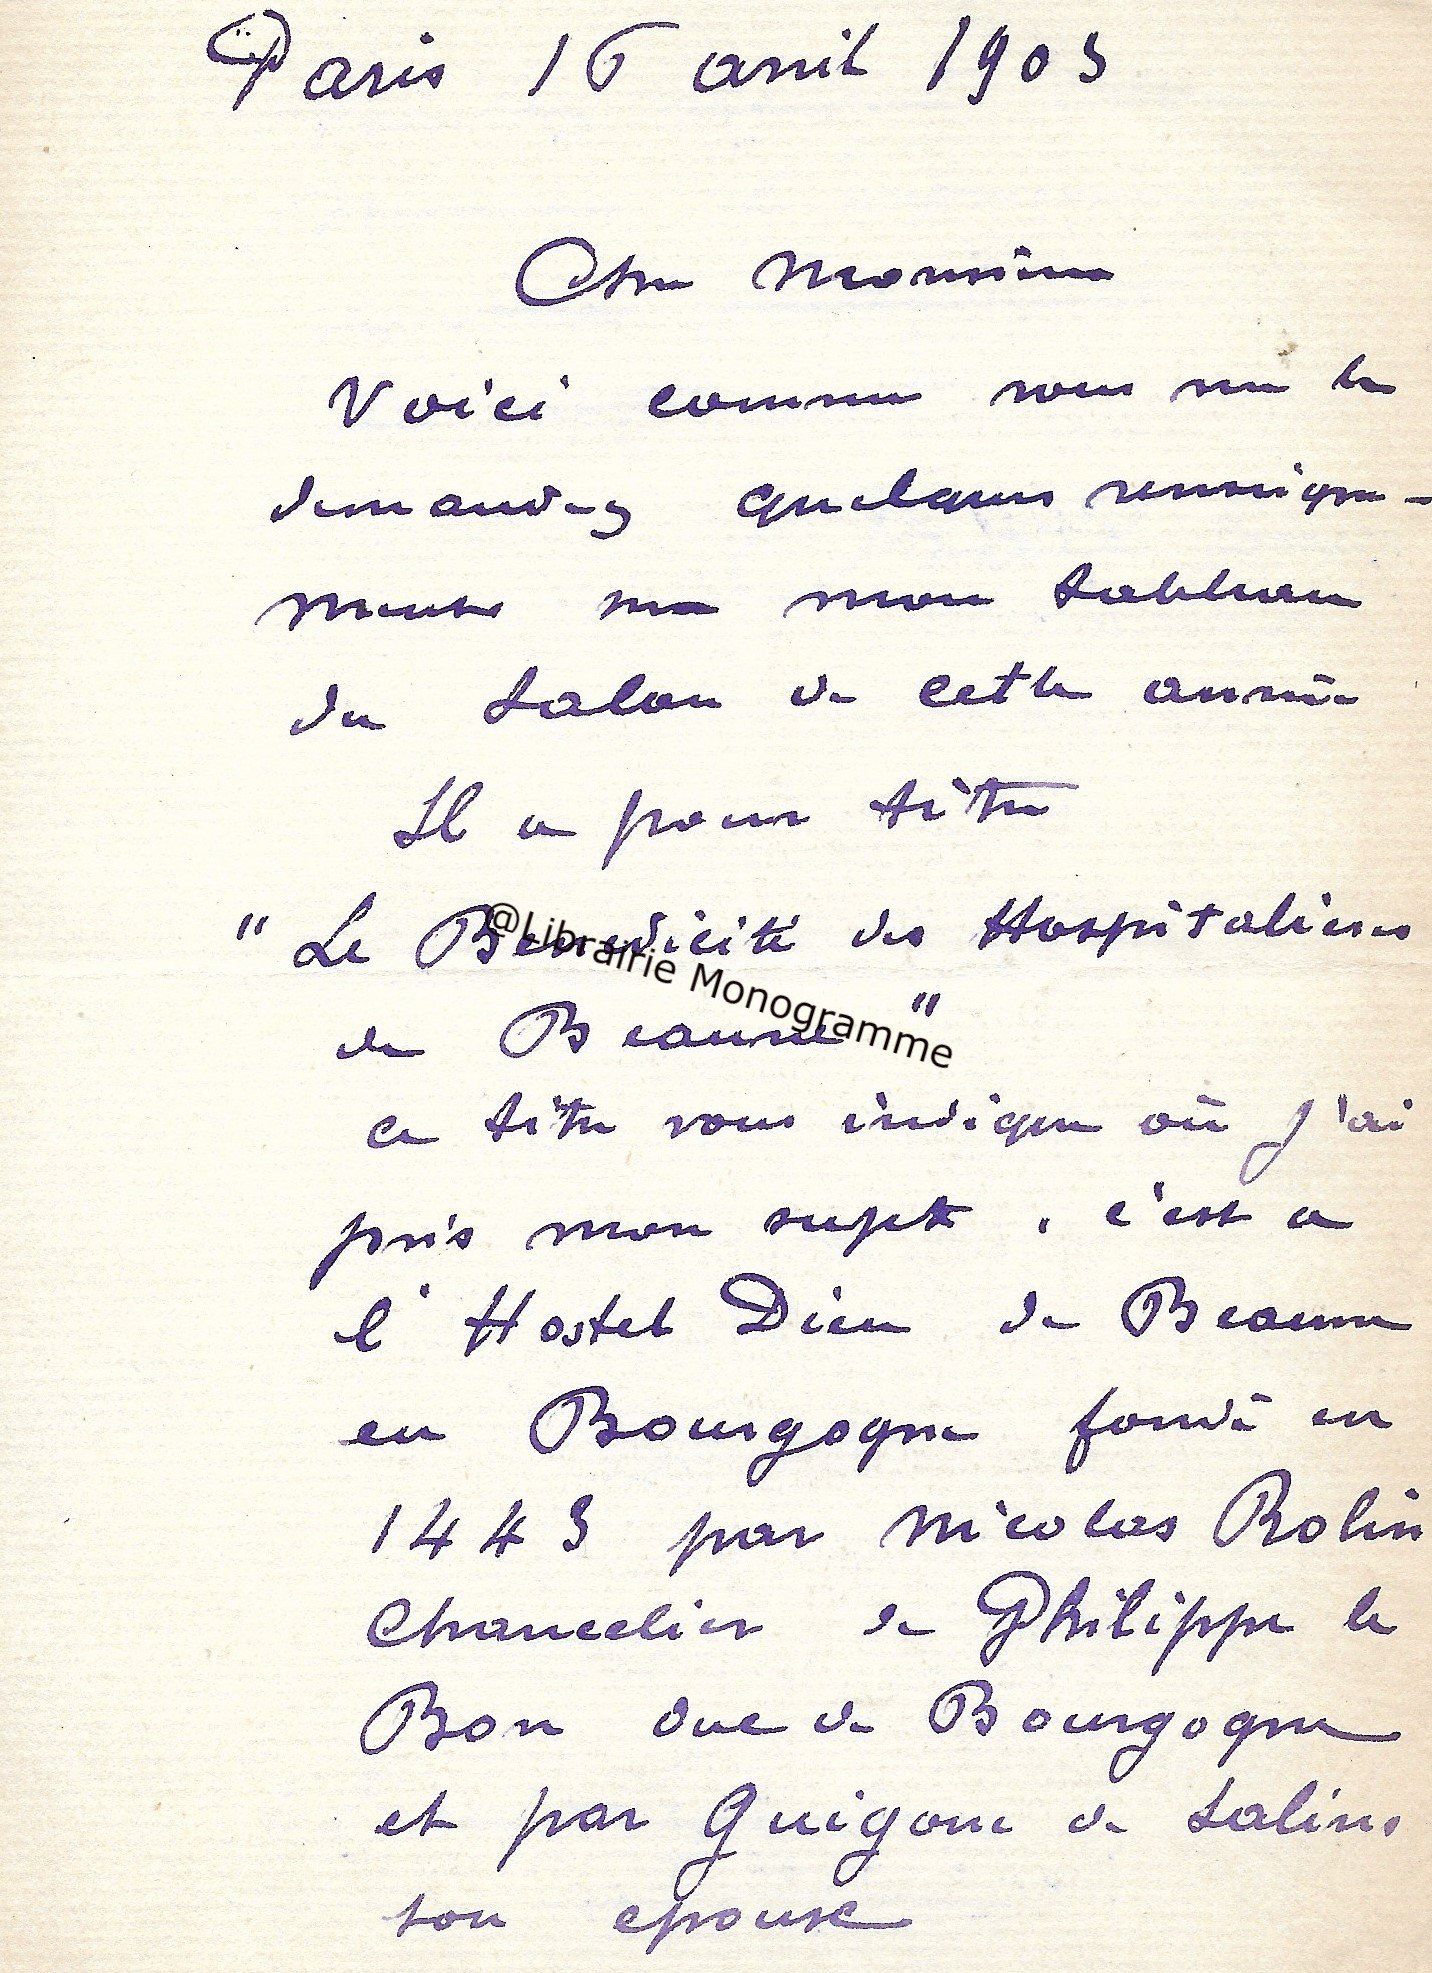 Paris 16 avril 1903
Cher Monsieur
Voici comme vous me le
demandez quelques renseigne-
ments sur mon tableau
du Salon de cette année
Il a pour titre
" Le Benedicité des Hospitalieres
de Beaune "
@Librairie Monogramme
ce titre vous indique où j'ai
pris mon sujet . c'est a
l'Hostel Dieu de Beaune
en Bourgogne fondé en
1443 par Nicolas Rolin
Chancelier de Philippe le
Bon duc de Bourgogne
et par Guigone de Salins
son epouse